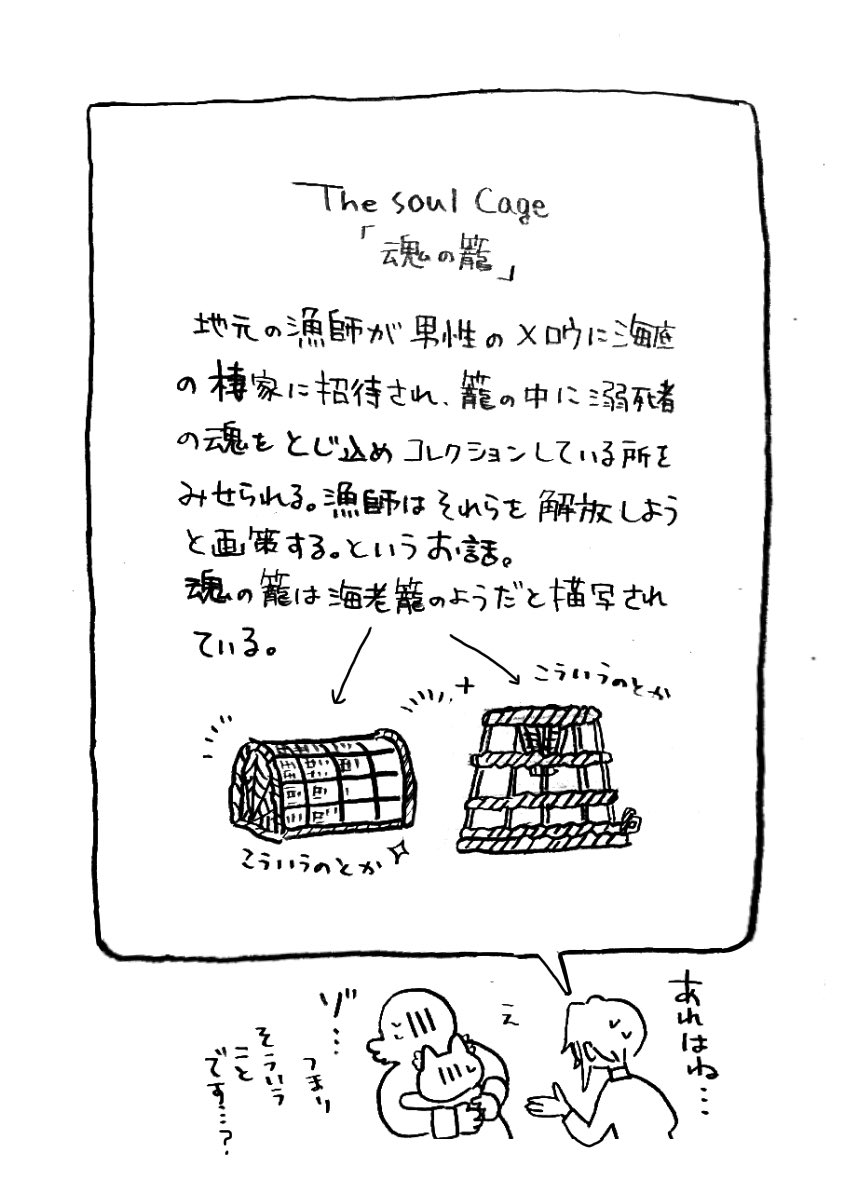 The soul Cage
「魂の籠」
地元の漁師が男性のメロウに海底
の棲家に招待され、籠の中に溺死者
の魂をとじ込めコレクションしている所を
みせられる。漁師はそれらを解放しよう
と画策する。というお話。
魂の籠は海老籠のようだと描写され
ている。
こういうのとか
こういうのとか
あれはね…
え
ゾ…
つまり
そういう
こと
です…?